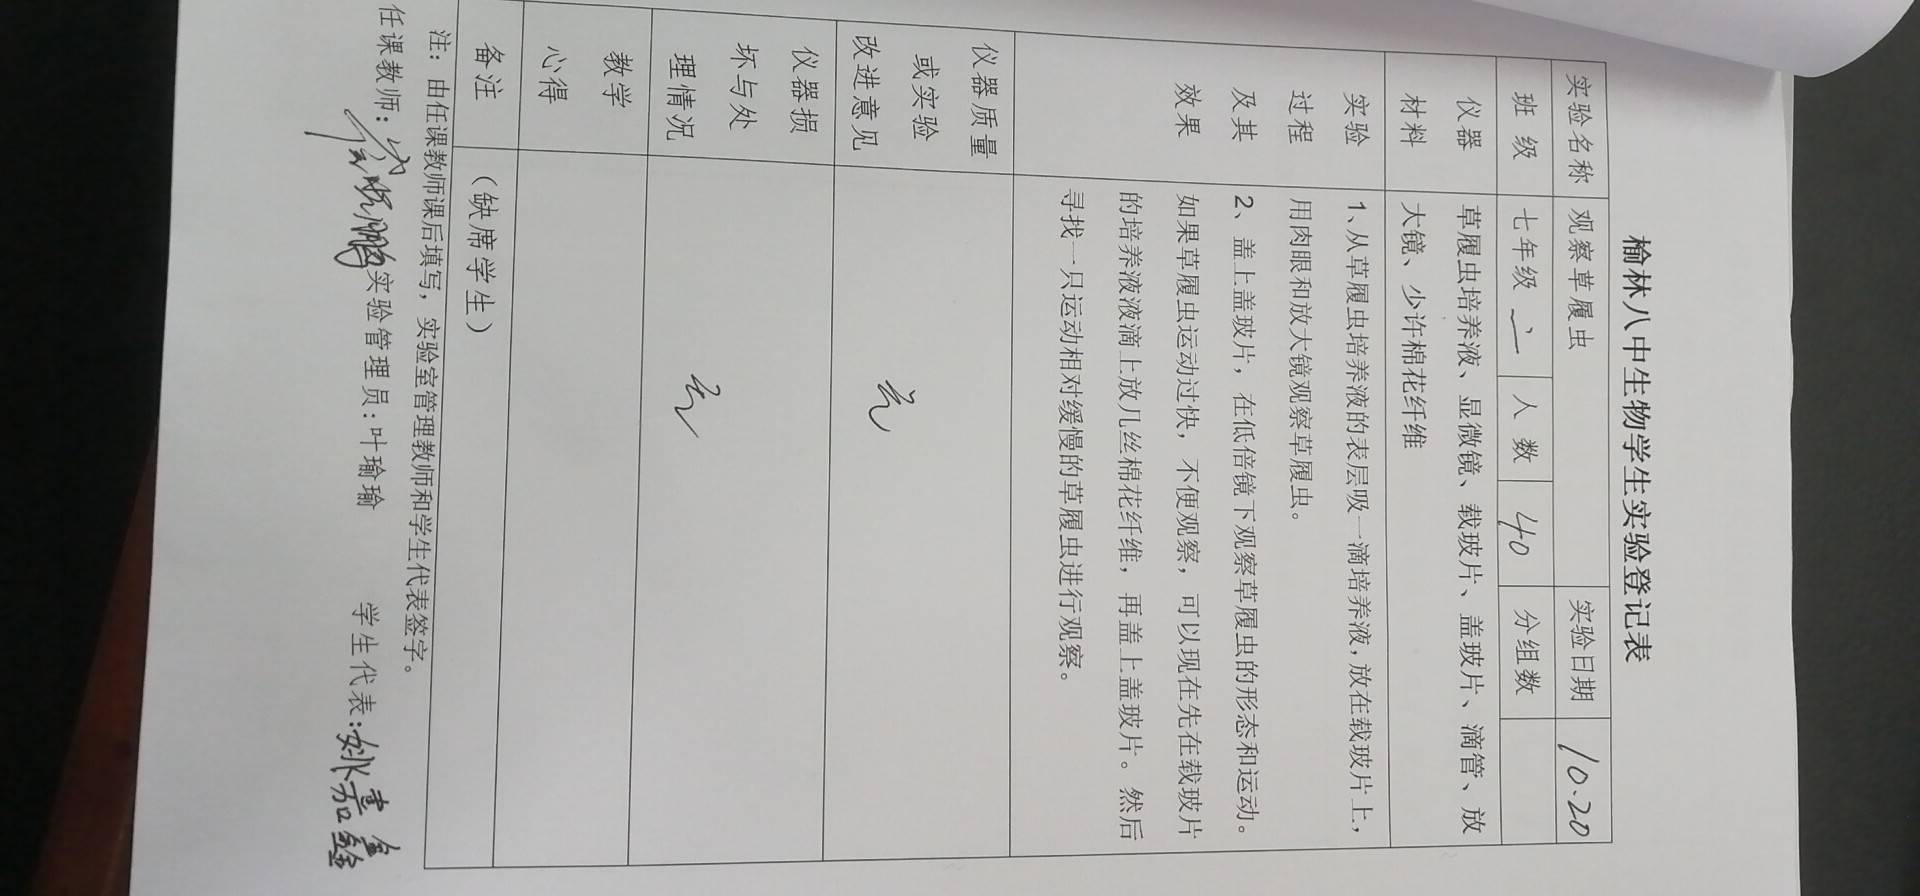 榆林八中生物学生实验登记表
实验名称 观察草履虫 实验日期 10.20
班 级 七年级 二 人 数 40 分组数
仪器 草履虫培养液、显微镜、载玻片、盖玻片、滴管、放
材料 大镜、少许棉花纤维
实验 1、从草履虫培养液的表层吸一滴培养液,放在载玻片上,
过程 用肉眼和放大镜观察草履虫。
及其 2、盖上盖玻片，在低倍镜下观察草履虫的形态和运动。
效果 如果草履虫运动过快，不便观察，可以现在先在载玻片
的培养液液滴上放几丝棉花纤维，再盖上盖玻片。然后
寻找一只运动相对缓慢的草履虫进行观察。
仪器质量
或实验
改进意见 无
仪器损
坏与处
理情况 无
教学
心得
备注 （缺席学生）
注：由任课教师课后填写，实验室管理教师和学生代表签字。
任课教师: 实验管理员:叶瑜瑜 学生代表:姚嘉鑫